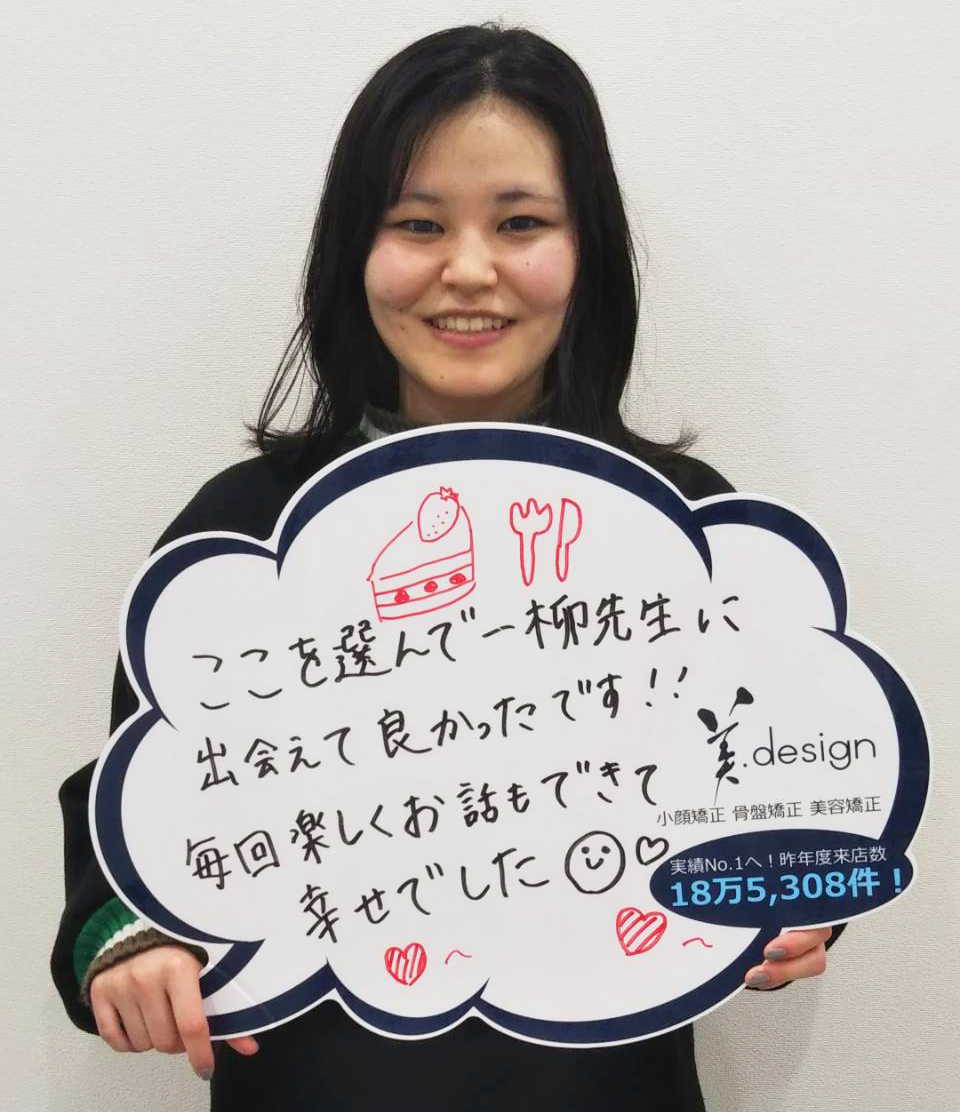 ここを選んで一柳先生に
出会えて良かったです!!
毎回楽しくお話もできて
幸せでした
美.design
小顔矯正 骨盤矯正 美容矯正
実績No.1へ!昨年度来店数
18万5,308件!